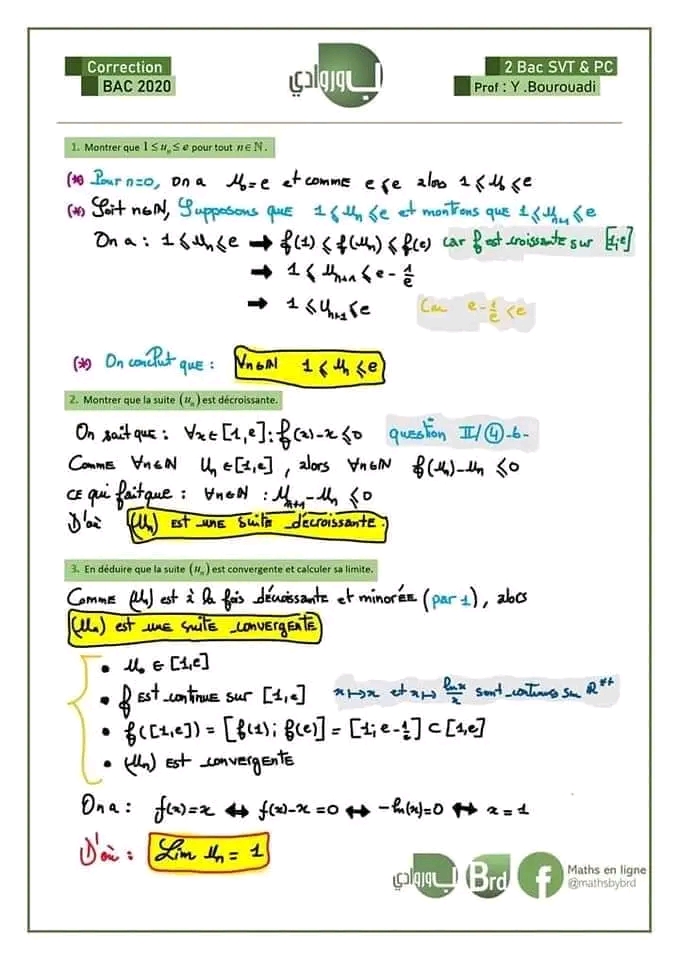 Correction
BAC 2020
بوروادي
2 Bac SVT & PC
Prof : Y .Bourouadi
1. Montrer que 1 ≤ uₙ ≤ e pour tout n ∈ ℕ .
(*) Pour n=0, on a u₀ = e et comme e ≤ e alors 1 ≤ u₀ ≤ e
(*) Soit n∈ℕ, Supposons que 1 ≤ uₙ ≤ e et montrons que 1 ≤ uₙ₊₁ ≤ e
On a : 1 ≤ uₙ ≤ e → f(1) ≤ f(uₙ) ≤ f(e) car f est croissante sur [1;e]
→ 1 ≤ uₙ₊₁ ≤ e - 1/e
→ 1 ≤ uₙ₊₁ ≤ e Car e - 1/e < e
(*) On conclut que : ∀n∈ℕ 1 ≤ uₙ ≤ e
2. Montrer que la suite (uₙ) est décroissante.
On sait que : ∀x∈[1,e] : f(x)-x ≤ 0 question II/ ④-b-
Comme ∀n∈ℕ uₙ∈[1,e] , alors ∀n∈ℕ f(uₙ)-uₙ ≤ 0
ce qui fait que : ∀n∈ℕ : uₙ₊₁-uₙ ≤ 0
D'où (uₙ) est une suite décroissante.
3. En déduire que la suite (uₙ) est convergente et calculer sa limite.
Comme (uₙ) est à la fois décroissante et minorée (par 1), alors
(uₙ) est une suite convergente
• u₀ ∈ [1,e]
• f est continue sur [1,e] x↦x et x↦ln x/x sont continues sur ℝ*⁺
• f([1,e]) = [f(1); f(e)] = [1; e-1/e] ⊂ [1,e]
• (uₙ) est convergente
On a : f(x)=x ↔ f(x)-x=0 ↔ -ln(x)=0 ↔ x=1
D'où : Lim uₙ = 1
بوروادي
Brd
f
Maths en ligne
@mathsbyrd